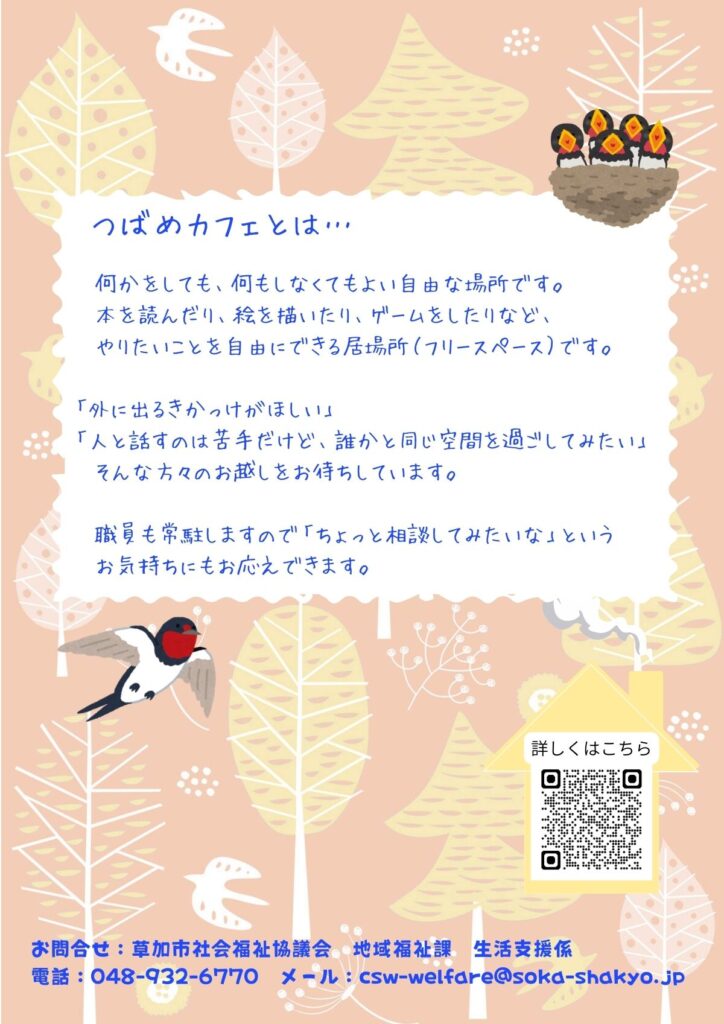 つばめカフェとは…
何かをしても、何もしなくてもよい自由な場所です。
本を読んだり、絵を描いたり、ゲームをしたりなど、
やりたいことを自由にできる居場所(フリースペース)です。
「外に出るきかっけがほしい」
「人と話すのは苦手だけど、誰かと同じ空間を過ごしてみたい」
そんな方々のお越しをお待ちしています。
職員も常駐しますので「ちょっと相談してみたいな」という
お気持ちにもお応えできます。
詳しくはこちら
お問合せ:草加市社会福祉協議会 地域福祉課 生活支援係
電話:048-932-6770 メール:csw-welfare@soka-shakyo.jp